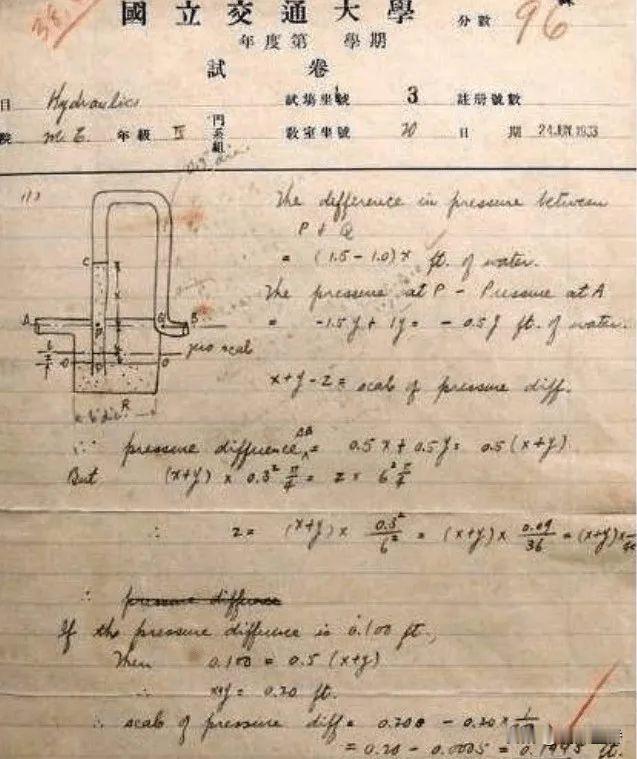 國立交通大學
分數 96
年度第 學期
試卷
目 Hydraulics 試場坐號 3 註册號數
院 M.E. 年級 IV 門系組 教室坐號 20 日期 24 JUN 1933
(1)
0.3" dia.
The difference in pressure between
P & Q
= (1.5 - 1.0) x ft. of water.
The pressure at P - Pressure at A
= -1.5y + 1y = -0.5y ft. of water.
x+y-z = scale of pressure diff.
C
A
P
Q
B
zero scale
O
O
R
6" dia.
∴ pressure difference AB = 0.5x + 0.5y = 0.5(x+y)
But (x+y) × 0.3² π/4 = z × 6² π/4
∴ z = (x+y) × 0.3²/6² = (x+y) × 0.09/36 = (x+y) ×
∴ pressure difference
If the pressure difference is 0.100 ft.,
Then 0.100 = 0.5 (x+y)
∴ x+y = 0.20 ft.
∴ scale of pressure diff = 0.200 - 0.20 ×
= 0.20 - 0.0005 = 0.1995 ft.